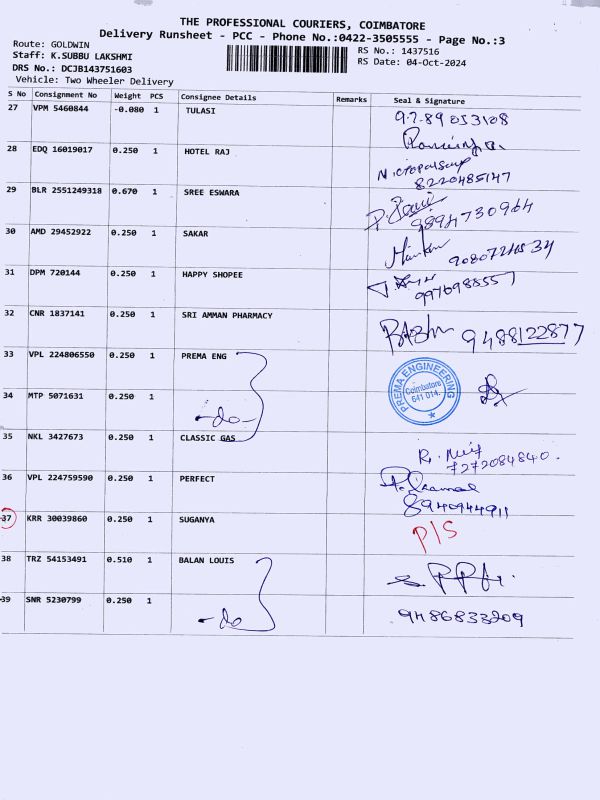 THE PROFESSIONAL COURIERS, COIMBATORE
Delivery Runsheet - PCC - Phone No.:0422-3505555 - Page No.:3
Route: GOLDWIN
Staff: K.SUBBU LAKSHMI
DRS No.: DCJB143751603
Vehicle: Two Wheeler Delivery
RS No.: 1437516
RS Date: 04-Oct-2024
S No Consignment No Weight PCS Consignee Details Remarks Seal & Signature
27 VPM 5460844 -0.080 1 TULASI
28 EDQ 16019017 0.250 1 HOTEL RAJ
8220485147
29 BLR 2551249318 0.670 1 SREE ESWARA
9894730964
30 AMD 29452922 0.250 1 SAKAR
31 DPM 720144 0.250 1 HAPPY SHOPEE
32 CNR 1837141 0.250 1 SRI AMMAN PHARMACY
9488122877
33 VPL 224806550 0.250 1 PREMA ENG
PREMA ENGINEERING
Coimbatore
641 014.
34 MTP 5071631 0.250 1 -do-
35 NKL 3427673 0.250 1 CLASSIC GAS
7272084840.
36 VPL 224759590 0.250 1 PERFECT
8940944911
37 KRR 30039860 0.250 1 SUGANYA P/S
38 TRZ 54153491 0.510 1 BALAN LOUIS
39 SNR 5230799 0.250 1 -do- 9486833209